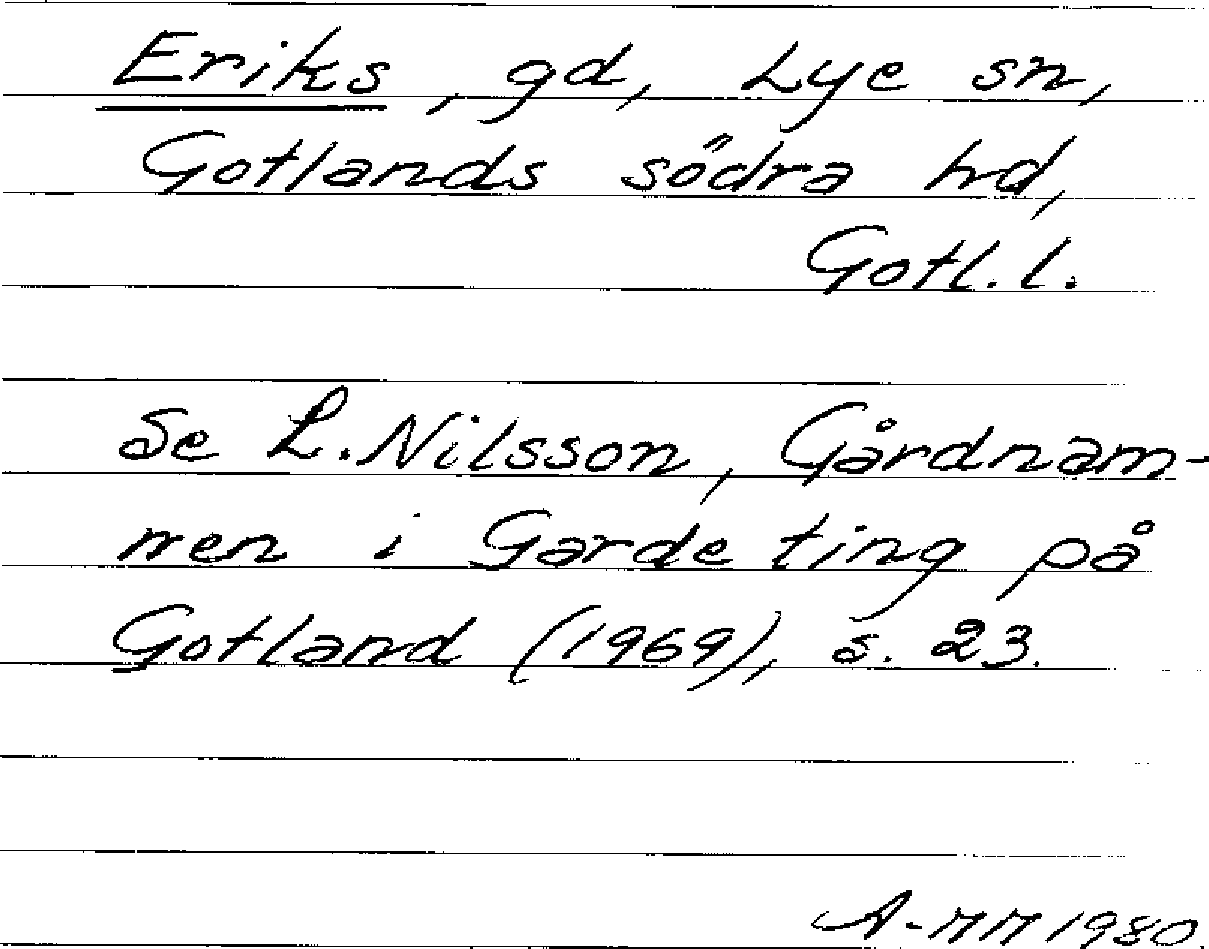 Eriks, gd, Lye sn,
Gotlands södra hd,
Gotl. l.
Se L. Nilsson, Gårdnam-
nen i Garde ting på
Gotland (1969), s. 23.
A-MM 1980